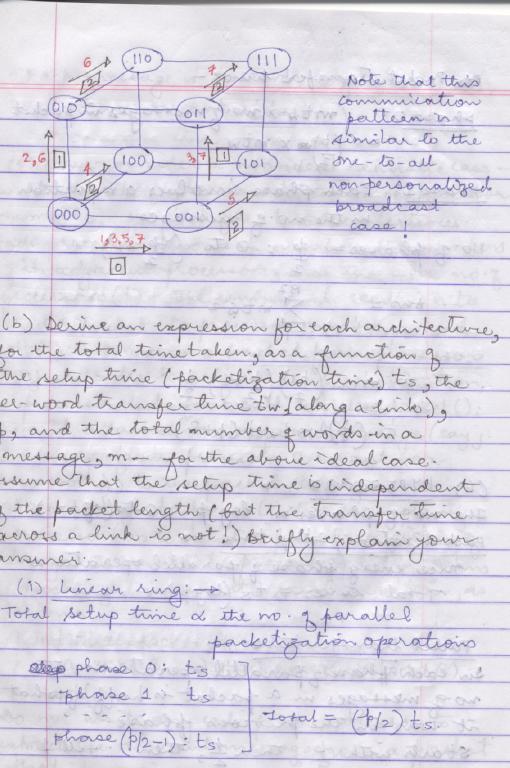 6
110
111
2
7
2
010
011
2,6
1
4
2
100
3,7
1
101
5
2
000
001
1,3,5,7
0
Note that this
communication
pattern is
similar to the
one-to-all
non-personalized
broadcast
case!
(b) Derive an expression for each architecture,
for the total time taken, as a function of
the setup time (packetization time) ts, the
er-word transfer time tw (along a link),
p, and the total number of words in a
message, m - for the above ideal case.
ssume that the setup time is independent
of the packet length (but the transfer time
across a link is not!) Briefly explain your
answer.
(1) Linear ring: →
Total setup time ∝ the no. of parallel
packetization operations
phase 0: ts
phase 1 ts
- - - - -
phase (p/2-1): ts
Total = (p/2) ts.